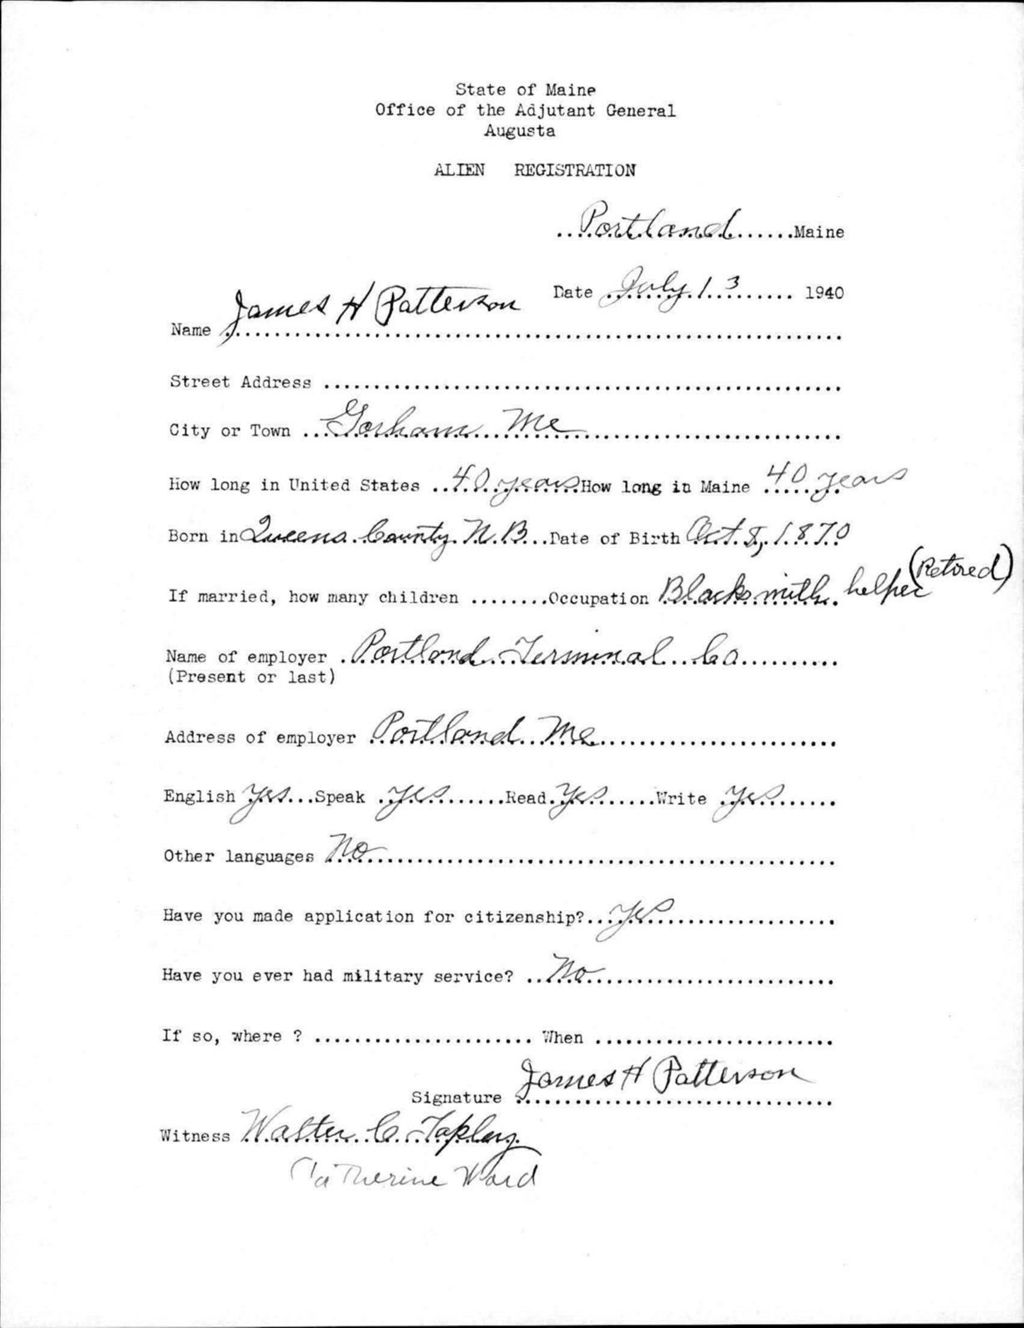 State of Maine
Office of the Adjutant General
Augusta
ALIEN REGISTRATION
..Portland......Maine
Date July 13 ........ 1940
Name James H Patterson
Street Address ....................................................
City or Town Gorham Me
How long in United States 40 years How long in Maine 40 years
Born in Queens County N.B. Date of Birth Oct. 8, 1870
If married, how many children ........Occupation Blacksmith helper (Retired)
Name of employer Portland Terminal Co
(Present or last)
Address of employer Portland Me
English Yes Speak Yes Read Yes Write Yes
Other languages No
Have you made application for citizenship? Yes
Have you ever had military service? No
If so, where ? ...................... When ........................
Signature James H Patterson
Witness Walter C. Tapley
Catherine Ward